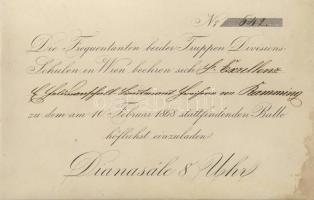 No 542.
Die Frequentanten beider Truppen Divisions-
Schulen in Wien beehren sich Sr Excellenz
Herrn Feldmarschall Lieutenant Freiherrn von Ramming
zu dem am 10. Februar 1868 stattfindenden Balle
höflichst einzuladen.
Dianasäle 8 Uhr